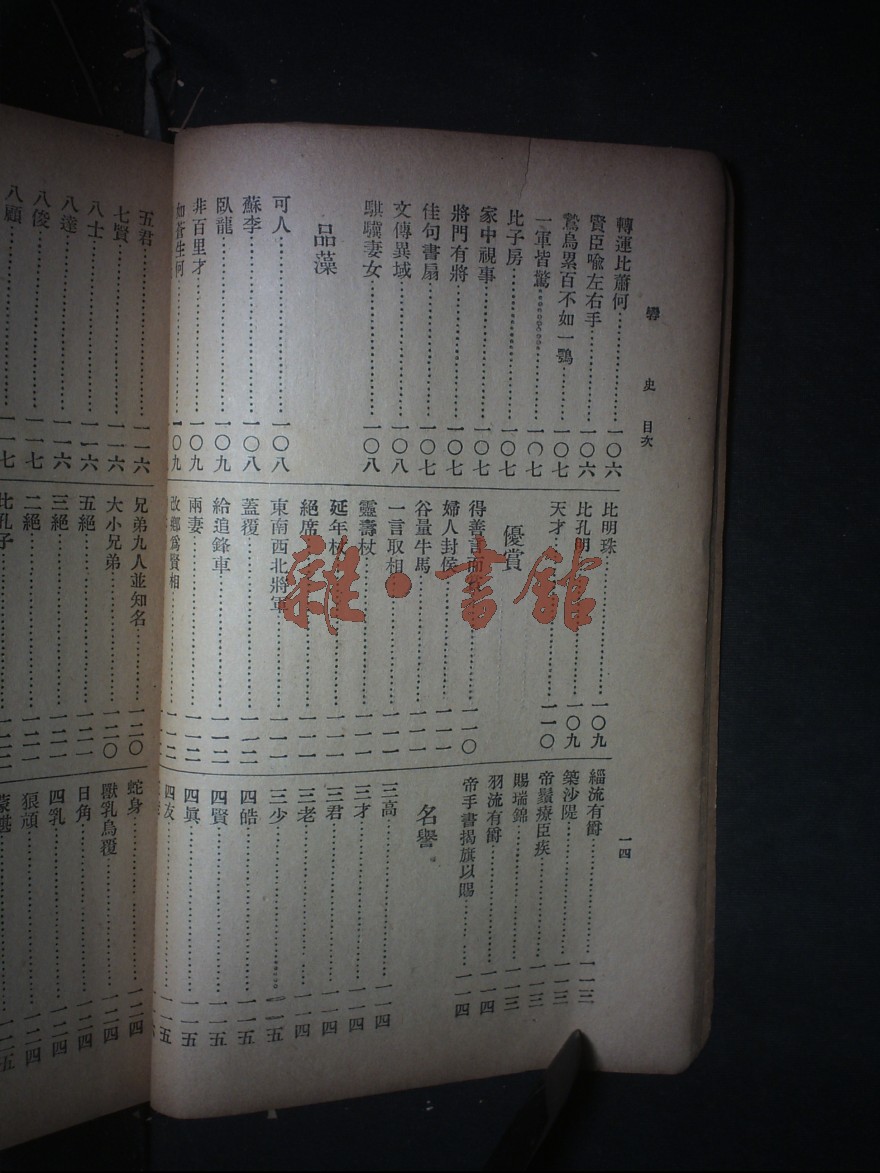 史 目次
一四
轉運比蕭何 一〇六
賢臣喩左右手 一〇六
鷙鳥累百不如一鶚 一〇七
一軍皆驚 一〇七
比子房 一〇七
家中視事 一〇七
將門有將 一〇七
佳句書扇 一〇七
文傳異域 一〇八
騏驥妻女 一〇八
品藻
可人 一〇八
蘇李 一〇八
臥龍 一〇九
非百里才 一〇九
如蒼生何 一〇九
比明珠 一〇九
比孔明 一〇九
天才 一一〇
優賞
得善言而 一一〇
婦人封侯 一一一
谷量牛馬 一一一
一言取相 一一一
靈壽杖 一一一
延年杖 一一一
絕席 一一一
東南西北將軍 一一一
蓋覆 一一二
給追鋒車 一一二
兩妻 一一二
改鄉爲賢相 一一二
緇流有爵 一一三
築沙隄 一一三
帝鬚療臣疾 一一三
賜瑞錦 一一三
羽流有爵 一一四
帝手書揭旗以賜 一一四
名譽
三高 一一四
三才 一一四
三君 一一四
三老 一一四
三少 一一五
四皓 一一五
四賢 一一五
四眞 一一五
四友 一一五
五君 一一六
七賢 一一六
八士 一一六
八達 一一六
八俊 一一七
八顧 一一七
兄弟九人並知名 一二〇
大小兄弟 一二〇
五絕 一二一
三絕 一二一
二絕 一二一
比孔子
蛇身 一二四
獸乳鳥覆 一二四
日角 一二四
四乳 一二四
狼頑 一二四
雜·書館